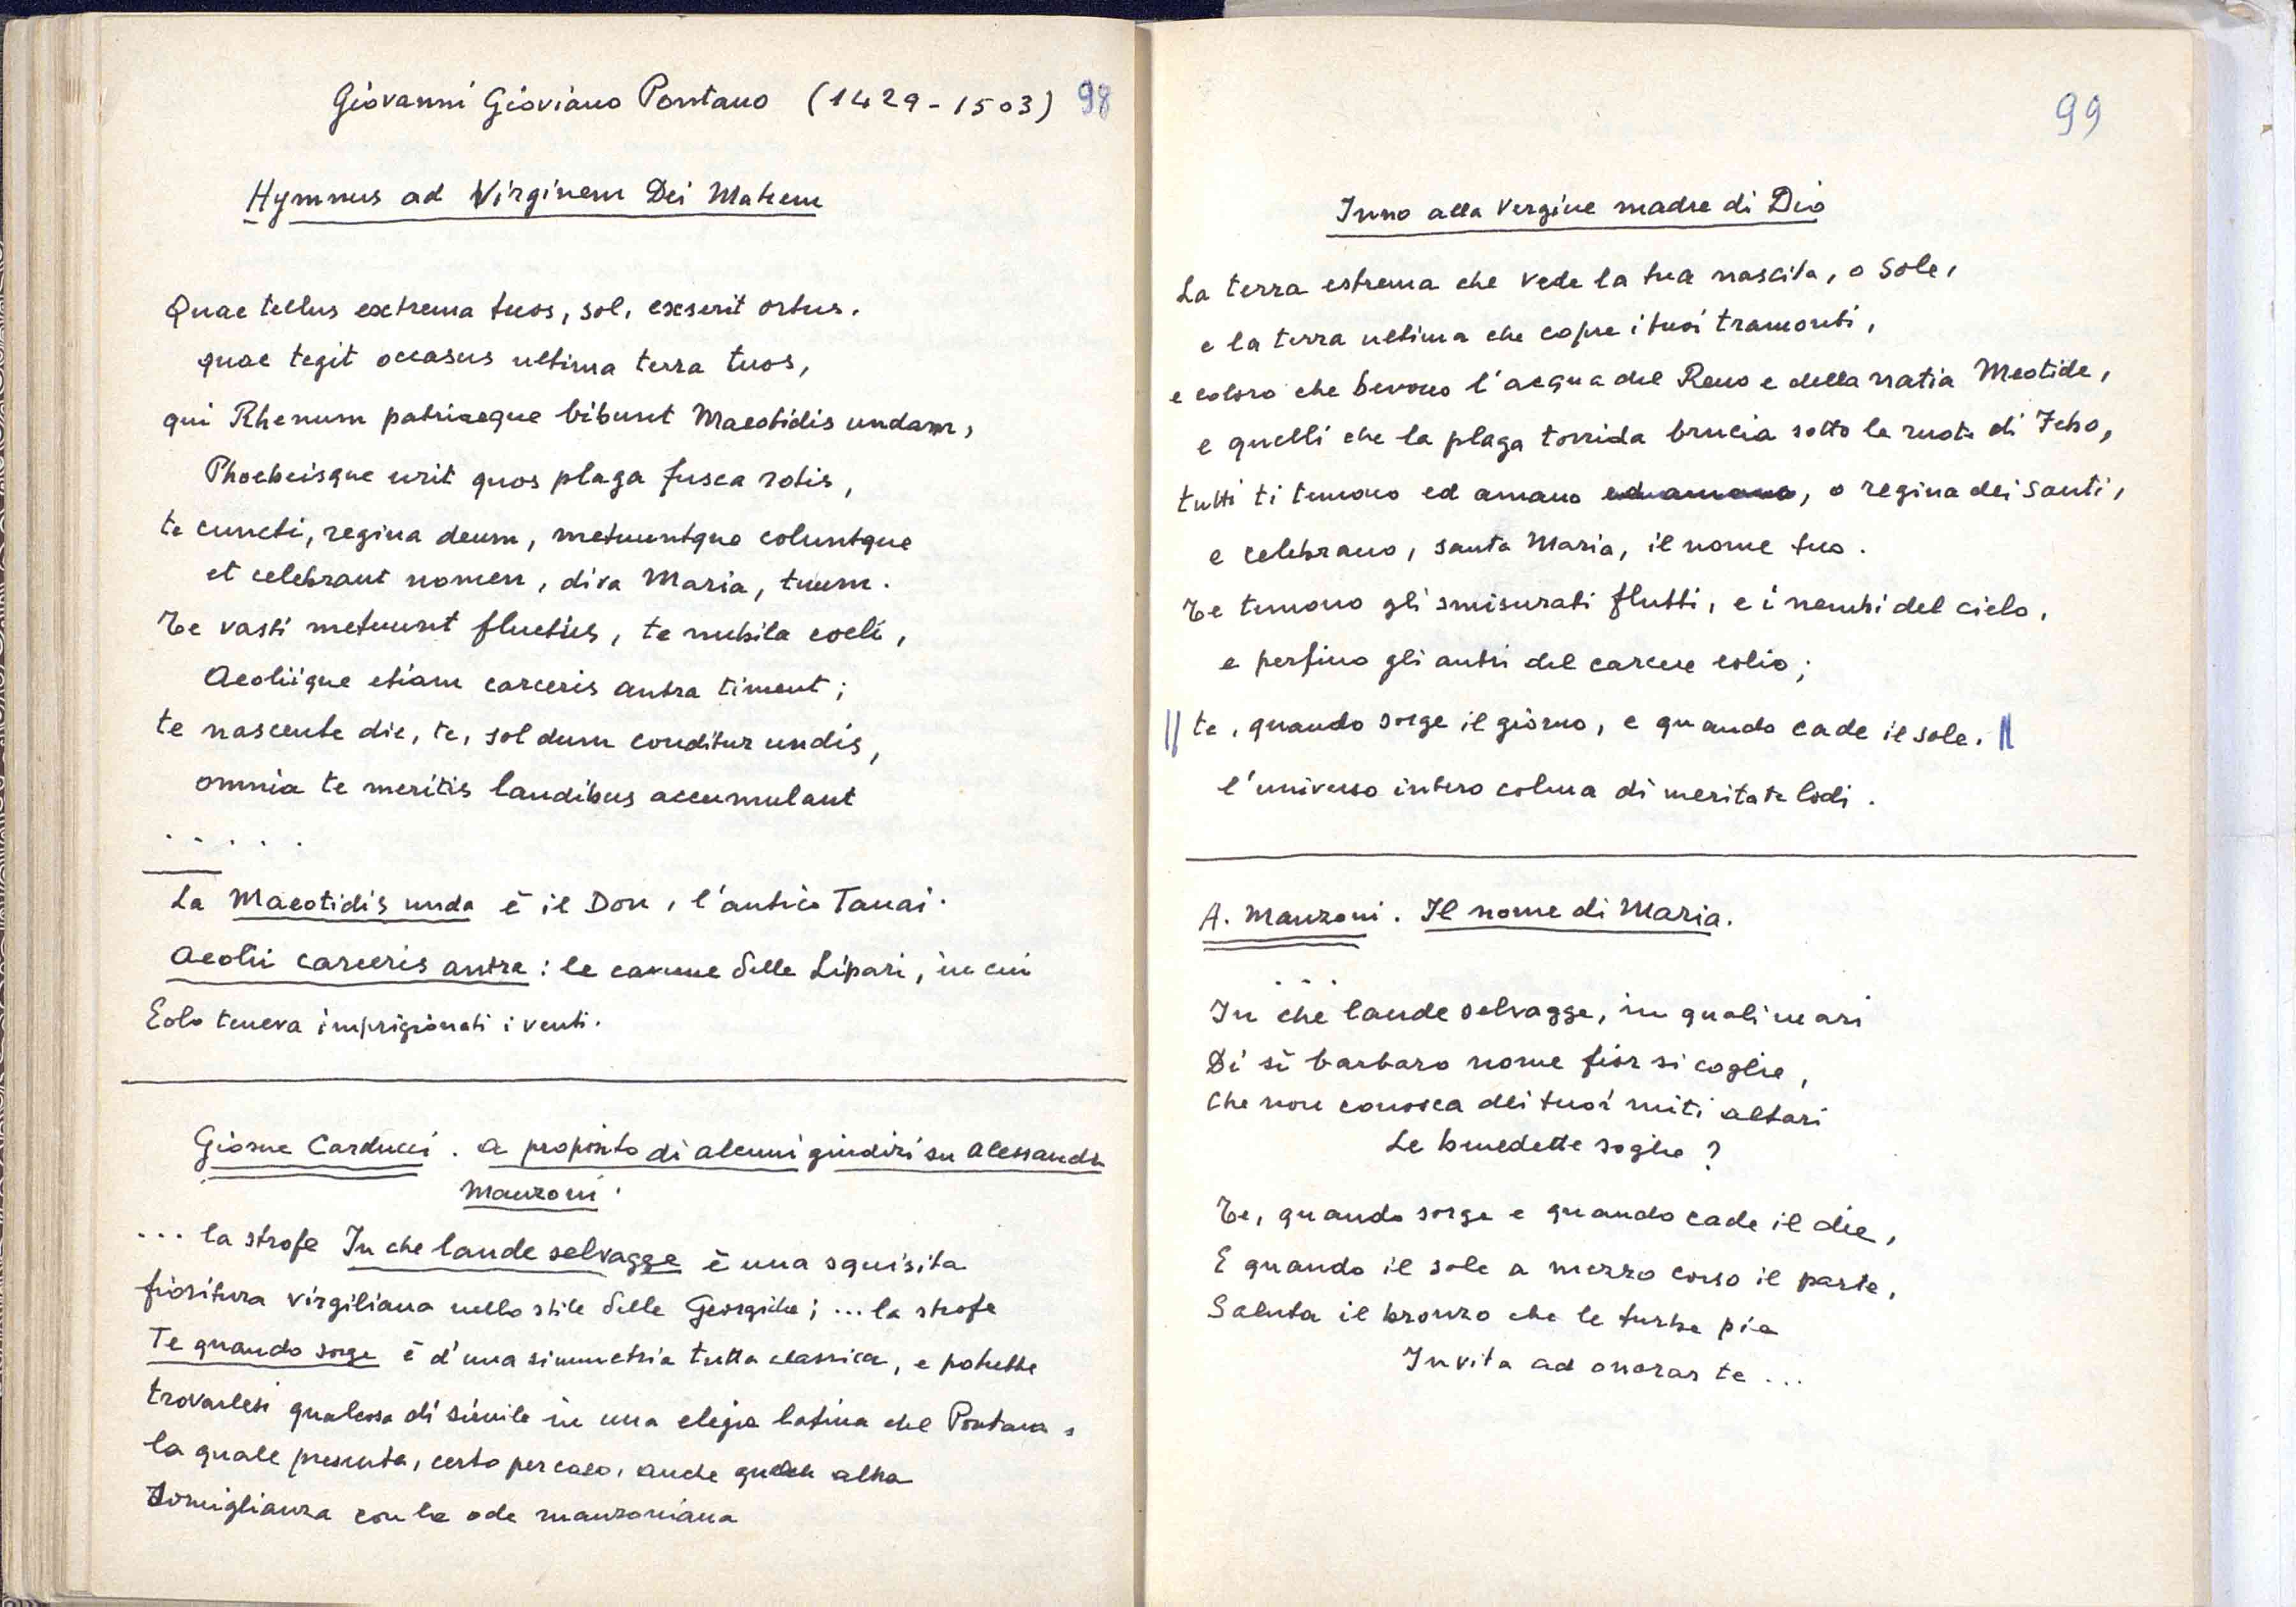 Giovanni Gioviano Pontano (1429-1503) 98
Hymnus ad Virginem Dei Matrem
Quae tellus extrema tuos, sol, exserit ortus,
quae tegit occasus ultima terra tuos,
qui Rhenum patriaeque bibunt Maeotidis undam,
Phoebeisque urit quos plaga fusca rotis,
te cuncti, regina deum, metuuntque coluntque
et celebrant nomen, diva Maria, tuum.
Te vasti metuunt fluctus, te nubila coeli,
Aeoliique etiam carceris antra timent;
te nascente die, te, sol dum conditur undis,
omnia te meritis laudibus accumulant
. . . . .
La Maeotidis unda è il Don, l'antico Tanai.
Aeolii carceris antra: le caverne delle Lipari, in cui
Eolo teneva imprigionati i venti.
Giosue Carducci. A proposito di alcuni giudizi su Alessandro
Manzoni.
... la strofe In che lande selvagge è una squisita
fioritura virgiliana nello stile delle Georgiche; ... la strofe
Te quando sorge è d'una simmetria tutta classica, e potrebbe
trovarlesi qualcosa di simile in una elegia latina del Pontano,
la quale presenta, certo per caso, anche qualche altra
somiglianza con la ode manzoniana
99
Inno alla Vergine madre di Dio
La terra estrema che vede la tua nascita, o Sole,
e la terra ultima che copre i tuoi tramonti,
e coloro che bevono l'acqua del Reno e della natia Meotide,
e quelli che la plaga torrida brucia sotto le ruote di Febo,
tutti ti temono ed amano ed amano, o regina dei Santi,
e celebrano, santa Maria, il nome tuo.
Te temono gli smisurati flutti, e i nembi del cielo,
e perfino gli antri del carcere eolio;
|| te, quando sorge il giorno, e quando cade il sole, ||
l'universo intero colma di meritate lodi.
A. Manzoni. Il nome di Maria.
. . .
In che lande selvagge, in quali mari
Di sì barbaro nome fior si coglie,
Che non conosca dei tuoi miti altari
Le benedette soglie?
Te, quando sorge e quando cade il die,
E quando il sole a mezzo corso il parte,
Saluta il bronzo che le turbe pie
Invita ad onorarte ...